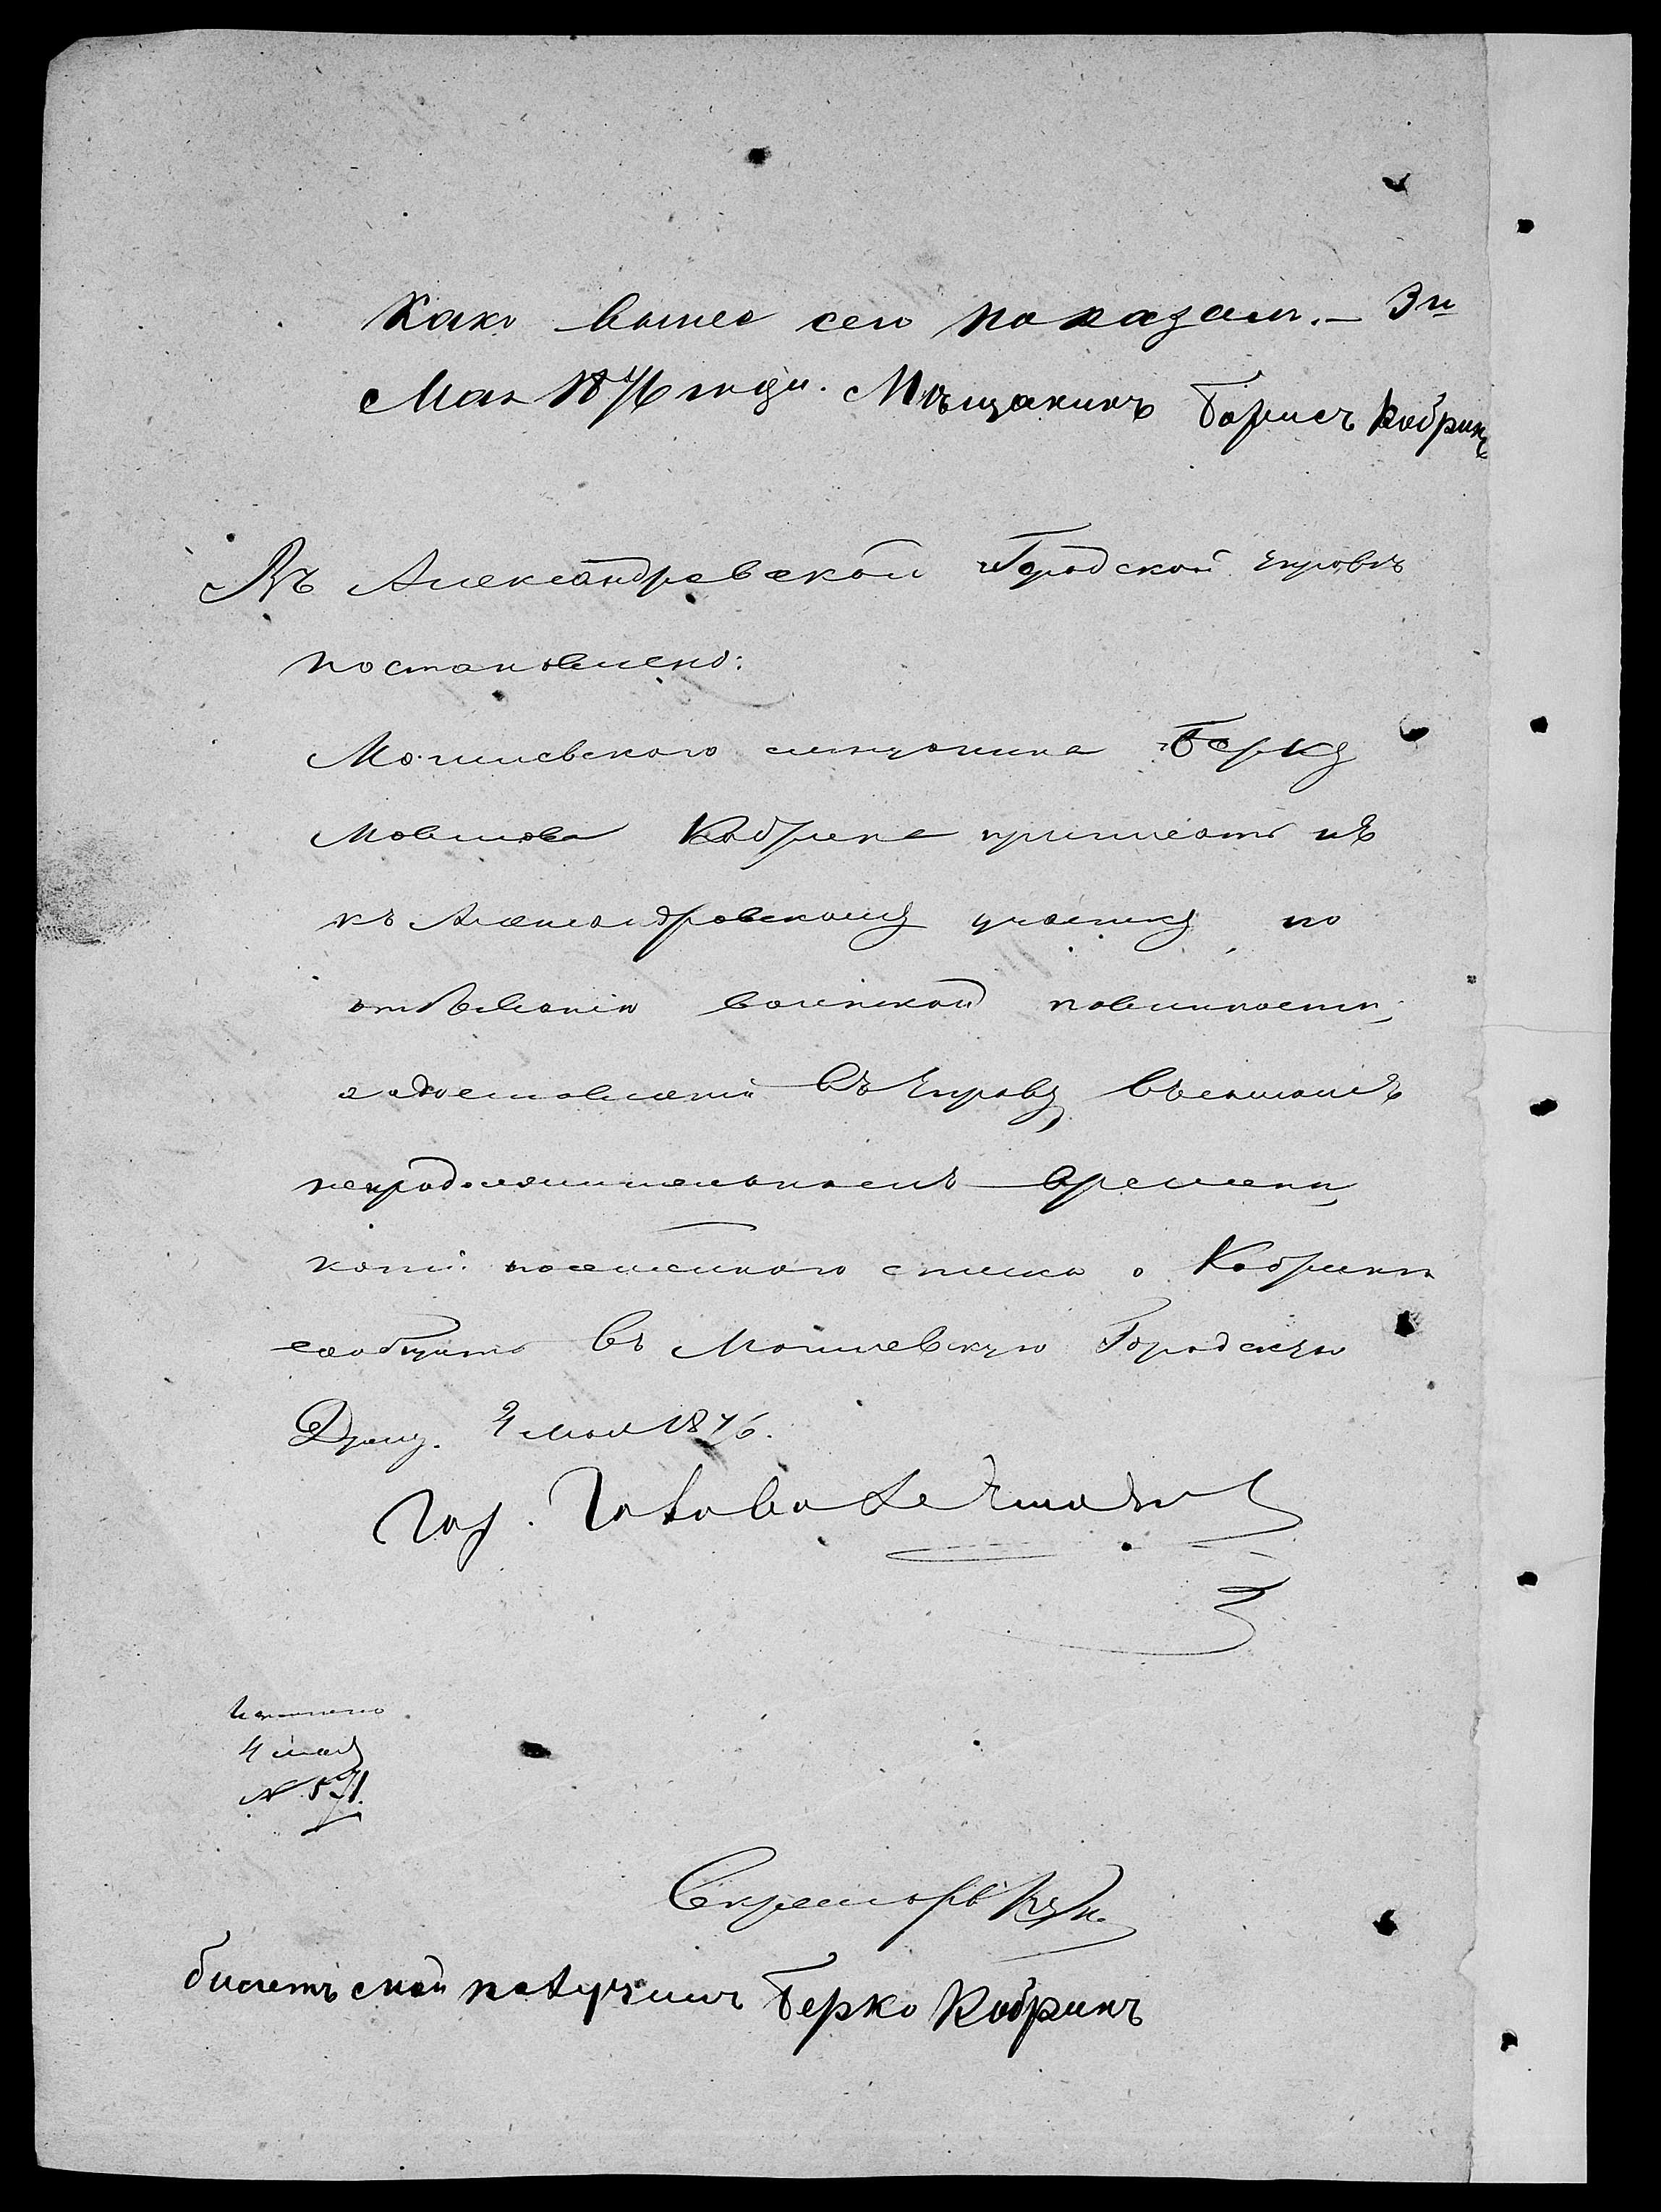 како выше сего показалъ. — 3го
Мая 1876 года. Мѣщанинъ Борисъ Кобринъ
Въ Александровской Городской Управѣ
постановлено:
Могилевского мѣщанина Берку
Мовшова Кобрина приписать
къ Александровскому участку по
отбыванію воинской повинности,
въ Управу въ самомъ
непродолжительномъ времени
копіи посемейного списка о Кобринѣ
сообщить въ Могилевскую Городскую
Думу. 4 мая 1876.
Гор. Голова
Исполнено
4 мая
№ 571.
Секретарь
билетъ свой получилъ Берко Кобринъ